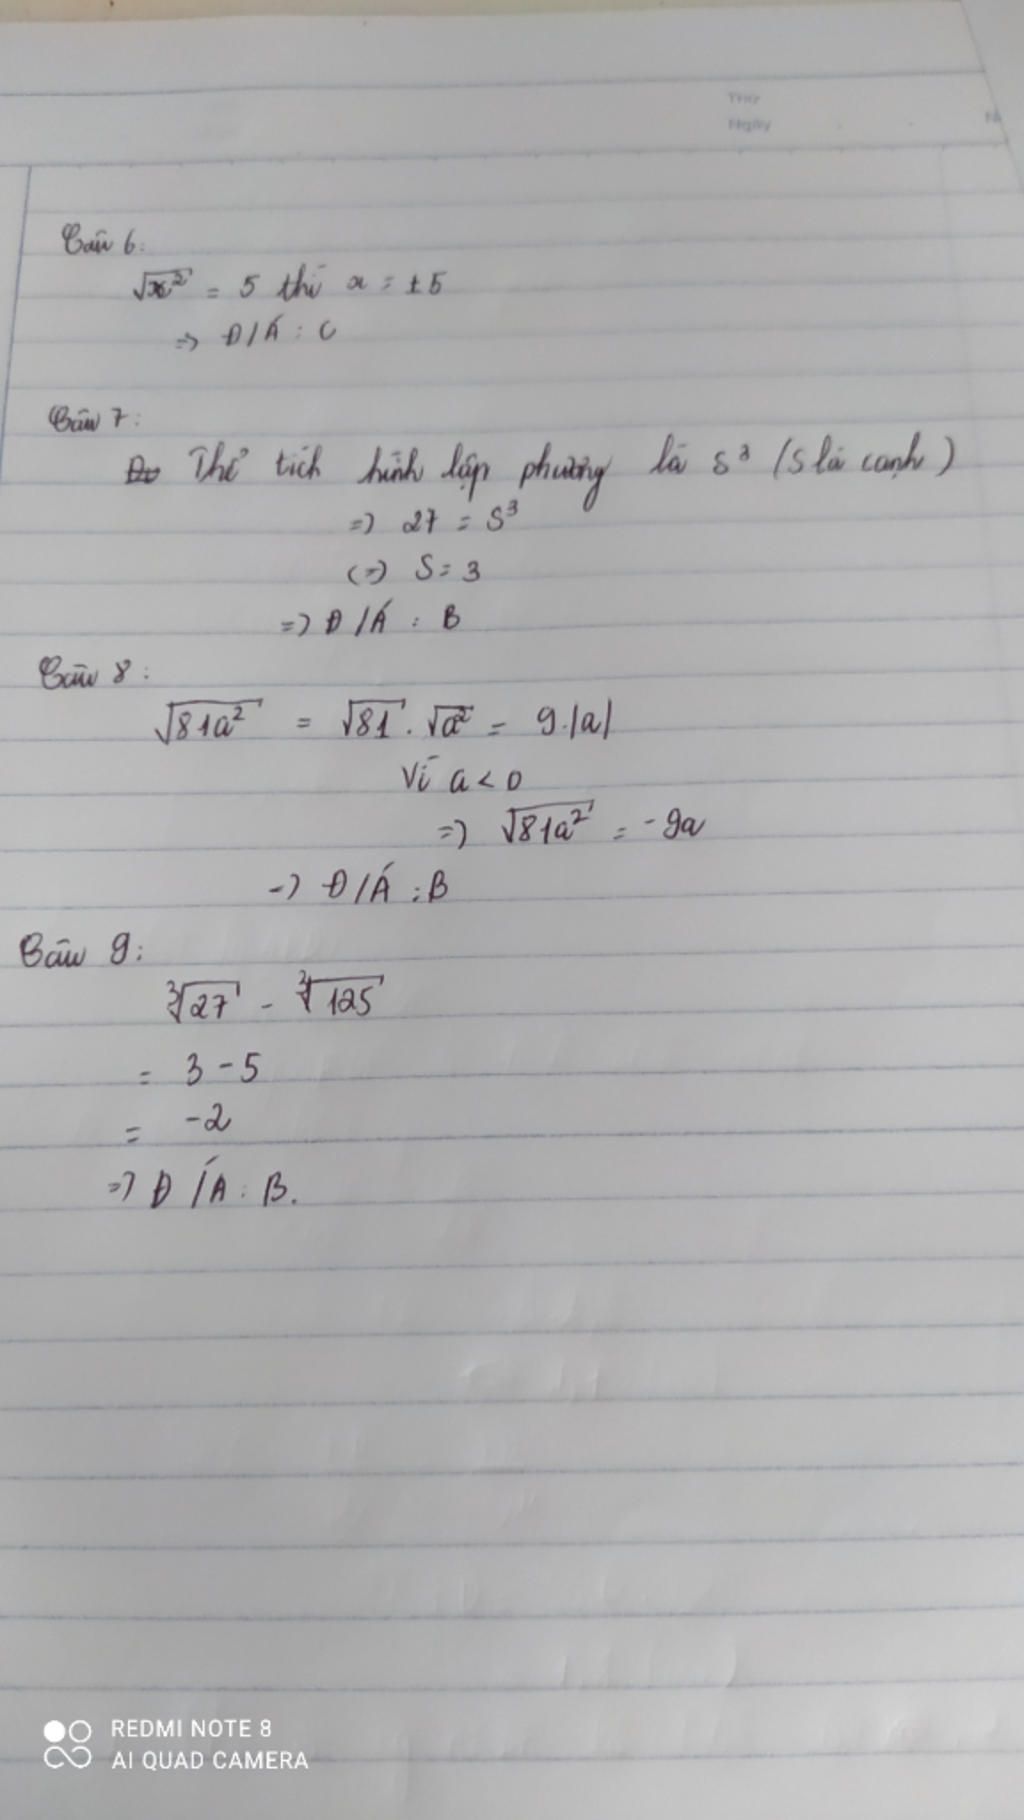 Thứ
Ngày
Câu 6:
√x² = 5 thì x = ±5
=> Đ/Á : C
Câu 7:
Thể tích hình lập phương là s³ (s là cạnh)
=> 27 = S³
(=) S = 3
=> Đ/Á : B
Câu 8:
√81a² = √81 . √a² = 9.|a|
Vì a < 0
=> √81a² = -9a
-> Đ/Á : B
Câu 9:
³√27 - ³√125
= 3 - 5
= -2
=> Đ/Á : B.
REDMI NOTE 8
AI QUAD CAMERA